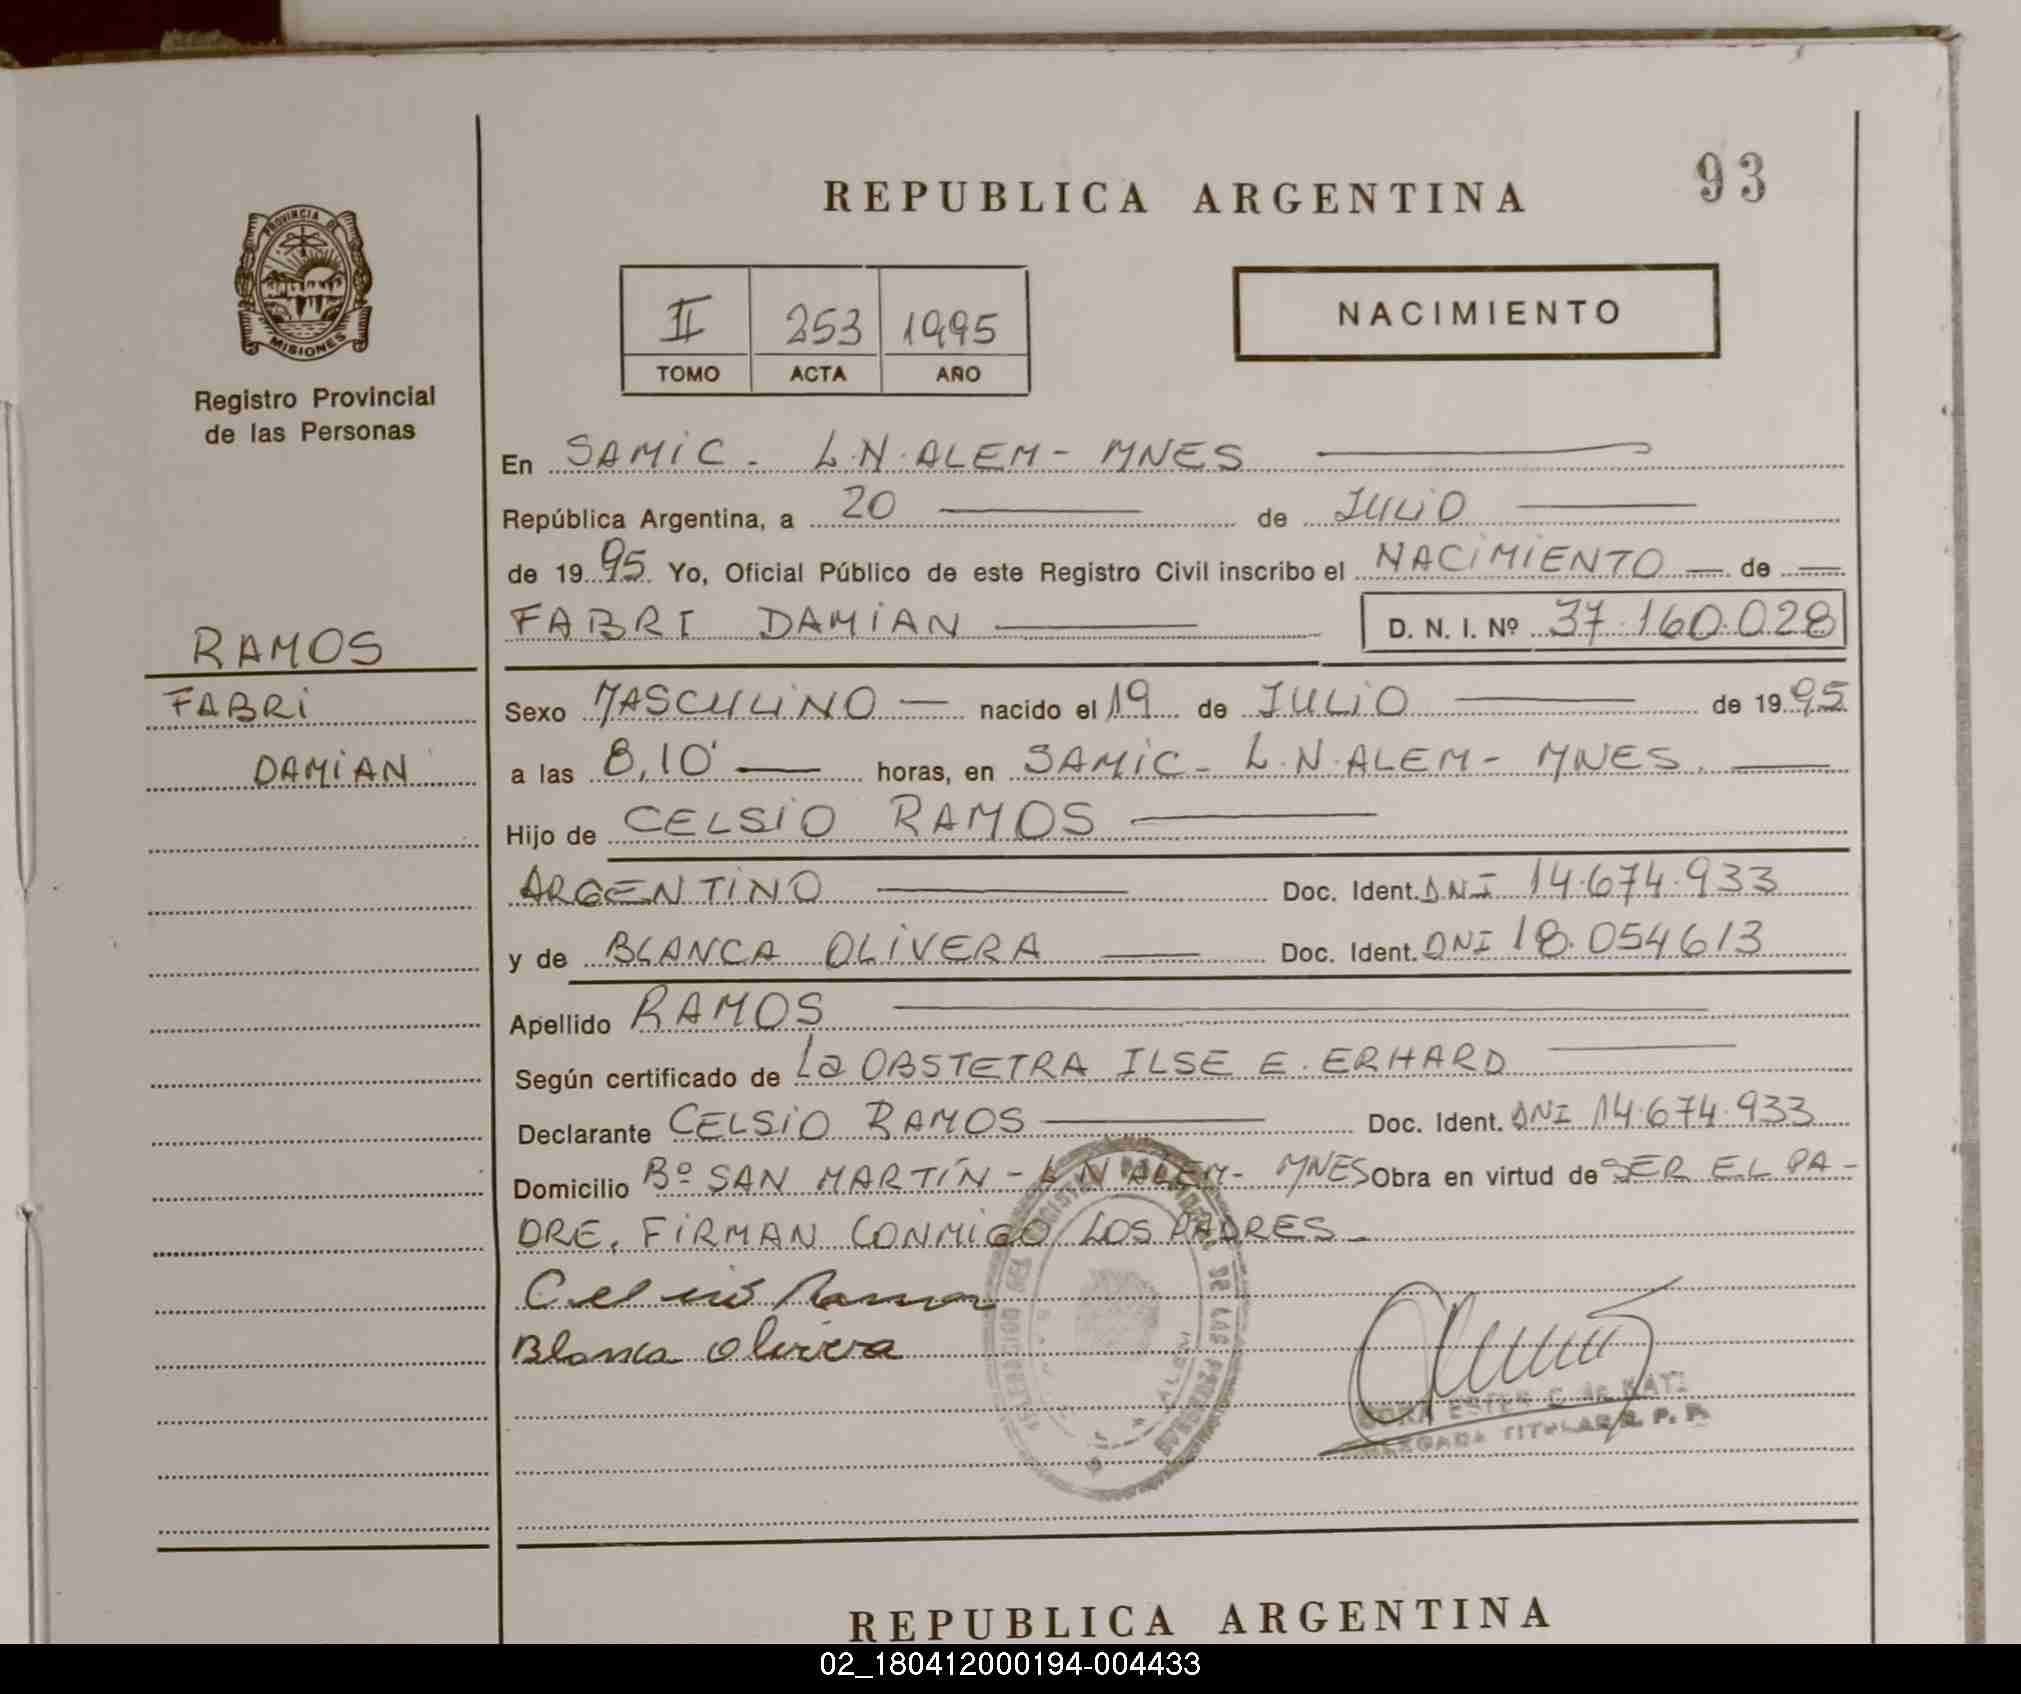 93
REPUBLICA ARGENTINA
PROVINCIA DE
MISIONES
Registro Provincial
de las Personas
II 253 1995
TOMO ACTA AÑO
NACIMIENTO
En SAMIC. L.N.ALEM- MNES
República Argentina, a 20 de JULIO
de 1995 Yo, Oficial Público de este Registro Civil inscribo el NACIMIENTO de
FABRI DAMIAN D. N. I. Nº 37.160.028
RAMOS
FABRI
DAMIAN
Sexo MASCULINO nacido el 19 de JULIO de 1995
a las 8,10' horas, en SAMIC- L.N.ALEM- MNES.
Hijo de CELSIO RAMOS
ARGENTINO Doc. Ident. DNI 14.674.933
y de BLANCA OLIVERA Doc. Ident. DNI 18.054613
Apellido RAMOS
Según certificado de La OBSTETRA ILSE E. ERHARD
Declarante CELSIO RAMOS Doc. Ident. DNI 14.674.933
Domicilio Bº SAN MARTÍN - L N ALEM- MNES Obra en virtud de SER EL PA-
DRE. FIRMAN CONMIGO LOS PADRES_
Celsio Ramos
Blanca Olivera
TITULAR R. P. P.
REPUBLICA ARGENTINA
02_180412000194-004433